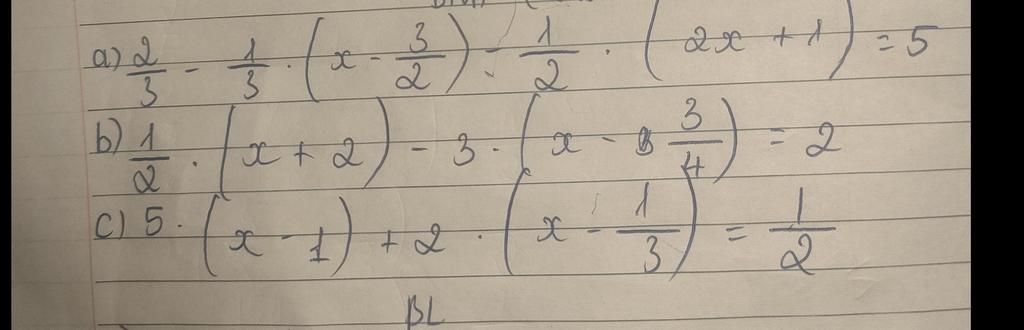 a) 2/3 - 1/3 · (x - 3/2) - 1/2 · (2x + 1) = 5
b) 1/2 · (x + 2) - 3 · (x - 3/4) = 2
c) 5 · (x - 1) + 2 · (x - 1/3) = 1/2
BL